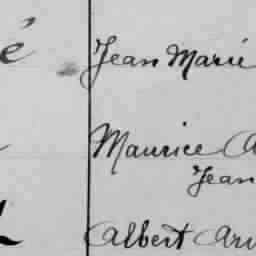 é Jean Marie
Maurice
Jean
Albert